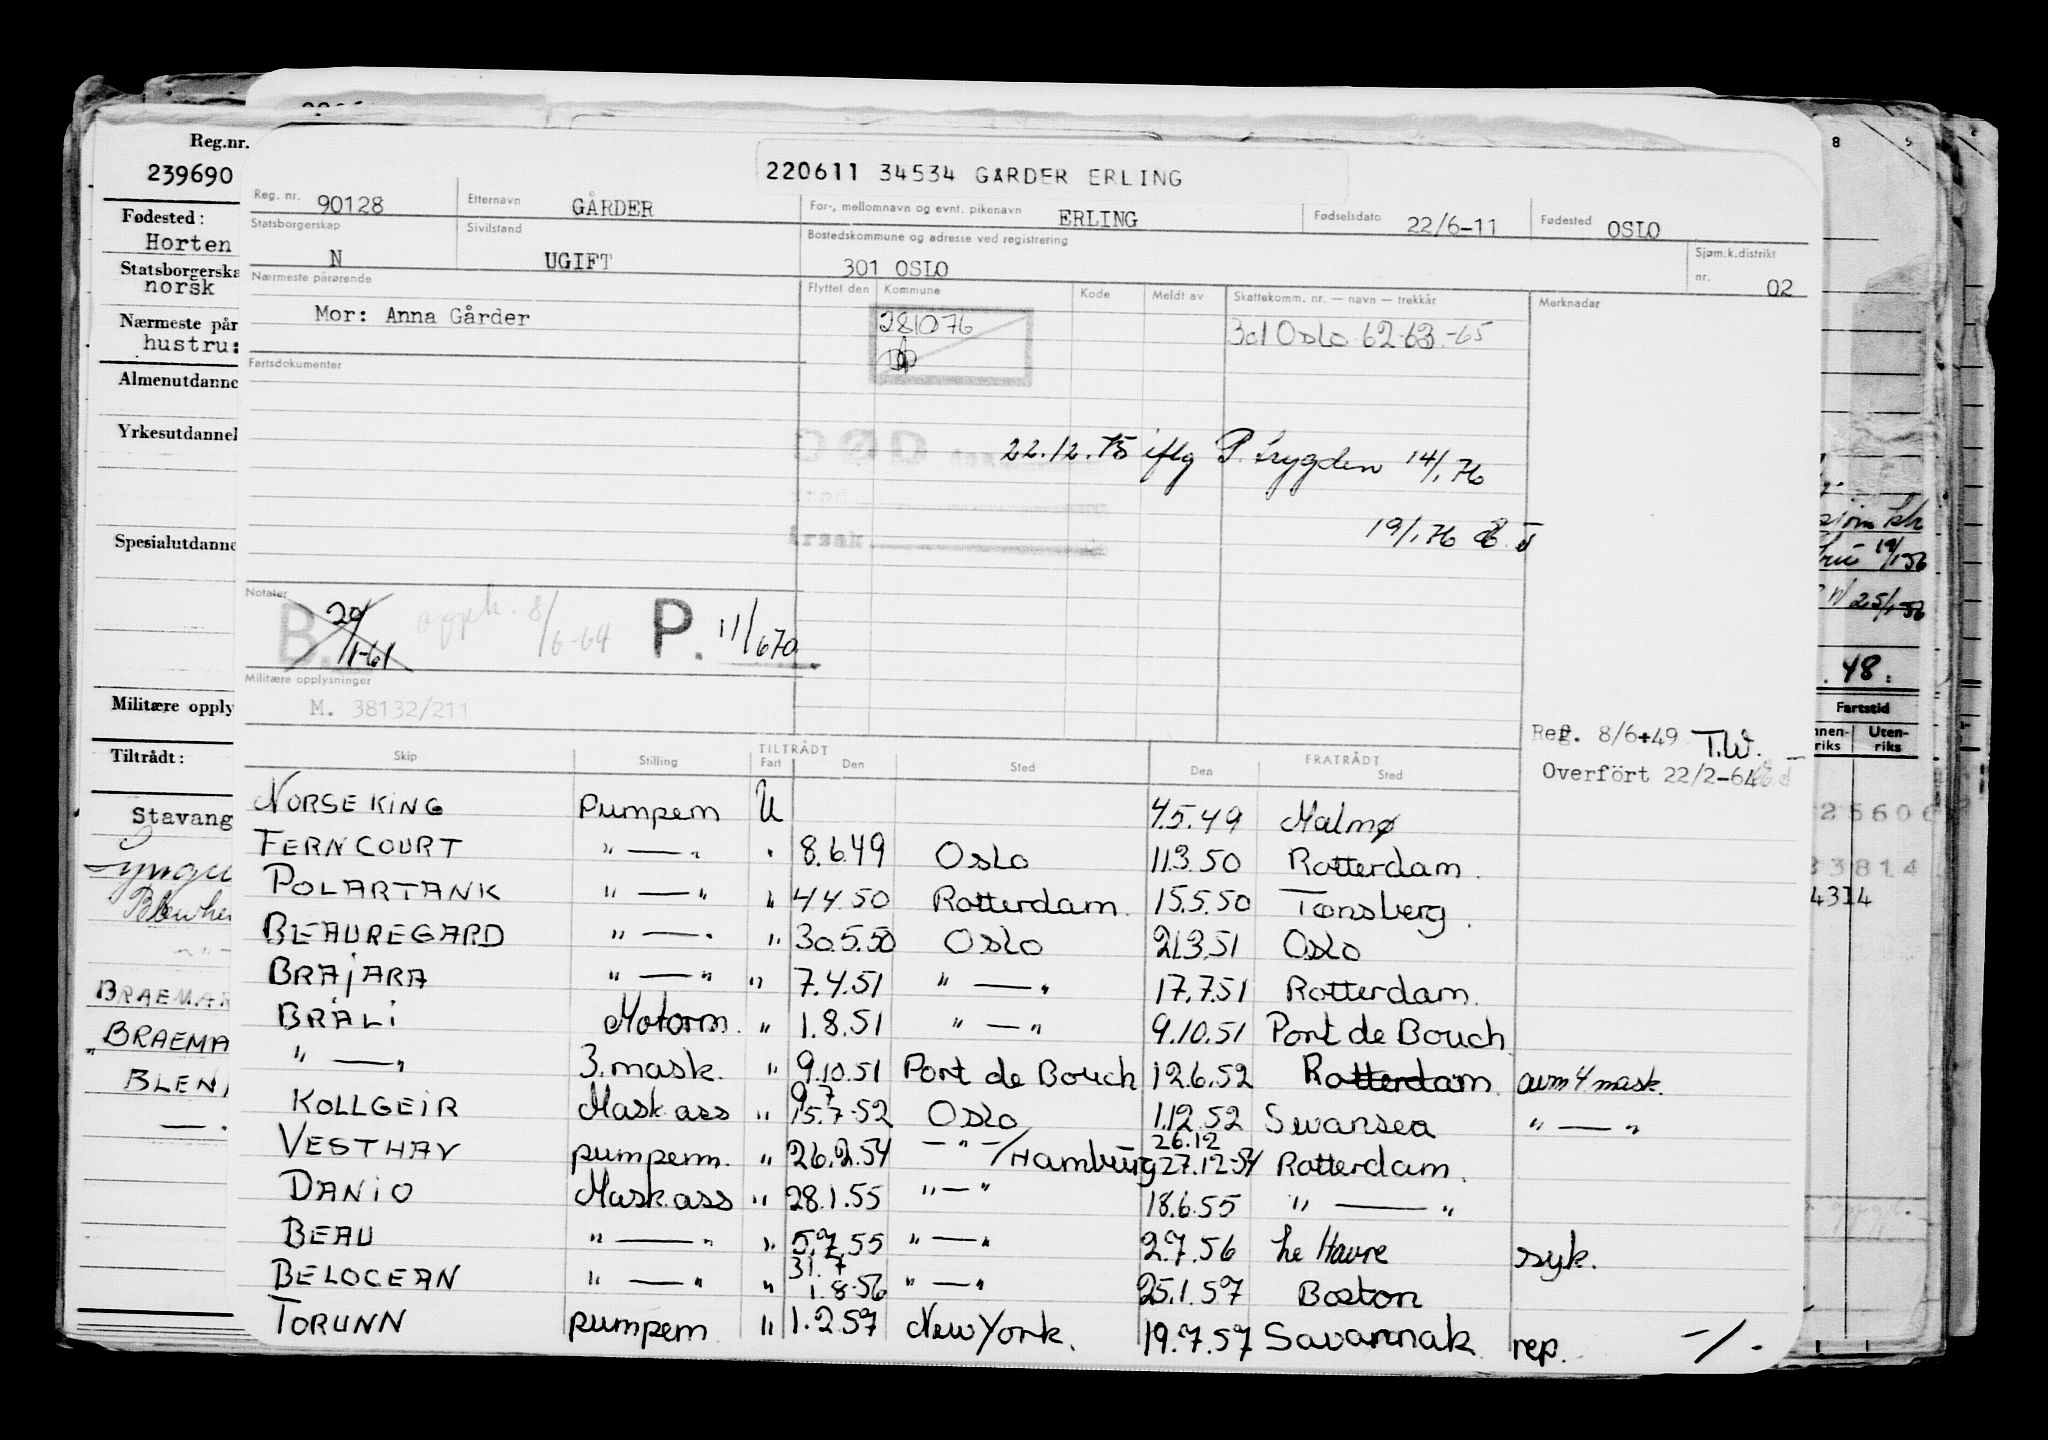 Reg.nr.
239690
Fødested:
Horten
Statsborgerska
norsk
Nærmeste pår
hustru:
Almenutdanne
Yrkesutdannel
Spesialutdanne
Militære opply
Tiltrådt:
Stavang
BRAEMAR
BRAEMA
BLEN
220611 34534 GARDER ERLING
Reg. nr. 90128 Etternavn GÅRDER For-, mellomnavn og evnt. pikenavn ERLING Fødselsdato 22/6-11 Fødested OSLO
Statsborgerskap N Sivilstand UGIFT Bostedskommune og adresse ved registrering 301 OSLO Sjøm.k.distrikt nr. 02
Nærmeste pårørende Flyttet den Kommune Kode Meldt av Skattekomm. nr. — navn — trekkår Merknader
Mor: Anna Gårder 281076 301 Oslo 62-63-65
Fartsdokumenter
DØD 22.12.75 iflg P. trygden 14/1 76
sted
årsak 19/1 76
Notater
B. 20/1-61 opph. 8/6-64 P. 11/670
Militære opplysninger
M. 38132/211
Reg. 8/6-49 T.W.
Overført 22/2-61
TILTRÅDT FRATRÅDT
Skip Stilling Fart Den Sted Den Sted
NORSE KING Pumpem U 4.5.49 Malmø
FERNCOURT " — " " 8.6.49 Oslo 11.3.50 Rotterdam.
POLARTANK " — " " 4.4.50 Rotterdam. 15.5.50 Tønsberg.
BEAUREGARD " — " " 30.5.50 Oslo 21.3.51 Oslo
BRAJARA " — " " 7.4.51 " — " 17.7.51 Rotterdam.
BRALI Motorm. " 1.8.51 " — " 9.10.51 Port de Bouch
" — " 3.mask. " 9.10.51 Port de Bouch 12.6.52 Rotterdam. avm 4 mask.
KOLLGEIR Mask.ass " 9.7 15.7.52 Oslo 1.12.52 Swansea " — "
VESTHAV pumpem. " 26.2.54 — " — /Hamburg 26.12 27.12.54 Rotterdam.
DANIO Mask.ass " 28.1.55 " — " 18.6.55 " — "
BEAU " — " " 5.7.55 " — " 2.7.56 Le Havre syk.
BELOCEAN " — " " 31.7 1.8.56 " — " 25.1.57 Boston
TORUNN pumpem " 1.2.57 New York. 19.7.57 Savannak rep. -/-
8
48.
Fartstid
nnen-riks Uten-riks
25606
33814
4314